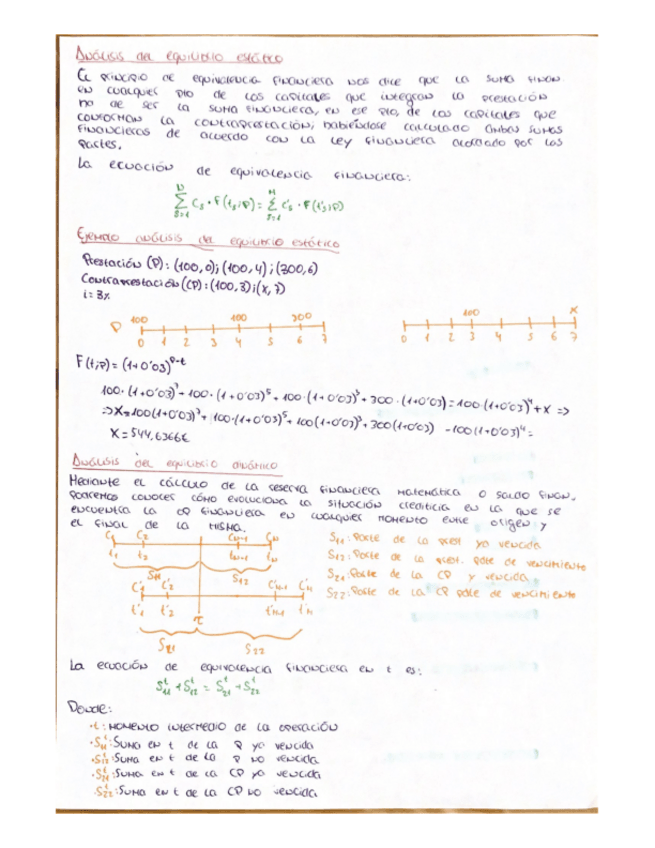 Análisis del equilibrio estático
El principio de equivalencia financiera nos dice que la suma finan.
en cualquier pto de los capitales que integran la prestación
ha de ser la suma financiera, en ese pto, de los capitales que
conforman la contraprestación; habiéndose calculado ambas sumas
financieras de acuerdo con la ley financiera acordado por las
partes.
La ecuación de equivalencia financiera:
N Σ s=1 Cs · F(ts;p) = M Σ s=1 C's · F(t's;p)
Ejemplo análisis del equilibrio estático
Prestación (P): (100,0); (100,4); (300,6)
Contraprestación (CP): (100,3); (X,7)
i = 3%
100 100 300
P 0 1 2 3 4 5 6 7
100 X
0 1 2 3 4 5 6 7
F(t;p) = (1+0'03)^p-t
100·(1+0'03)^7 + 100·(1+0'03)^5 + 100·(1+0'03)^3 + 300·(1+0'03) = 100·(1+0'03)^4 + X =>
=> X = 100(1+0'03)^7 + 100·(1+0'03)^5 + 100(1+0'03)^3 + 300(1+0'03) - 100(1+0'03)^4 =
X = 544,6366€
Análisis del equilibrio dinámico
Mediante el cálculo de la reserva financiera matemática o saldo finan.
podremos conocer cómo evoluciona la situación crediticia en la que se
encuentra la op financiera en cualquier momento entre origen y
el final de la misma.
C1 C2 CN-1 CN
t1 t2 tN-1 tN
S11 S12
C'1 C'2 C'M-1 C'M
t'1 t'2 τ t'M-1 t'M
S21 S22
S11: Parte de la prest ya vencida
S12: Parte de la prest. pdte de vencimiento
S21: Parte de la CP y vencida
S22: Parte de la CP pdte de vencimiento
La ecuación de equivalencia financiera en t es:
S^t11 + S^t12 = S^t21 + S^t22
Donde:
·t: momento intermedio de la operación
·S^t11: Suma en t de la P ya vencida
·S^t12: Suma en t de la P no vencida
·S^t21: Suma en t de la CP ya vencida
·S^t22: Suma en t de la CP no vencida